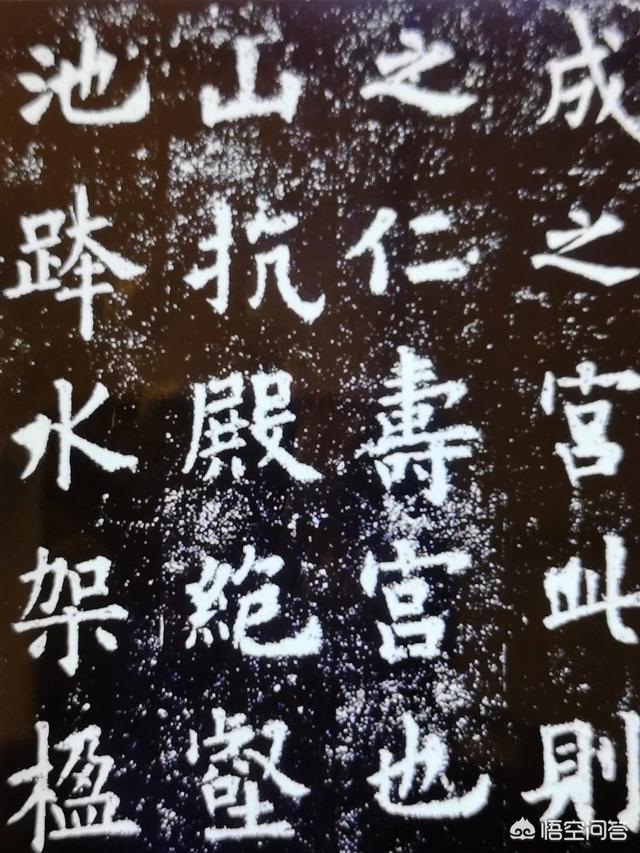 成之宮此則
之仁壽宮也
山抗殿絶壑
池跨水架楹
悟空问答